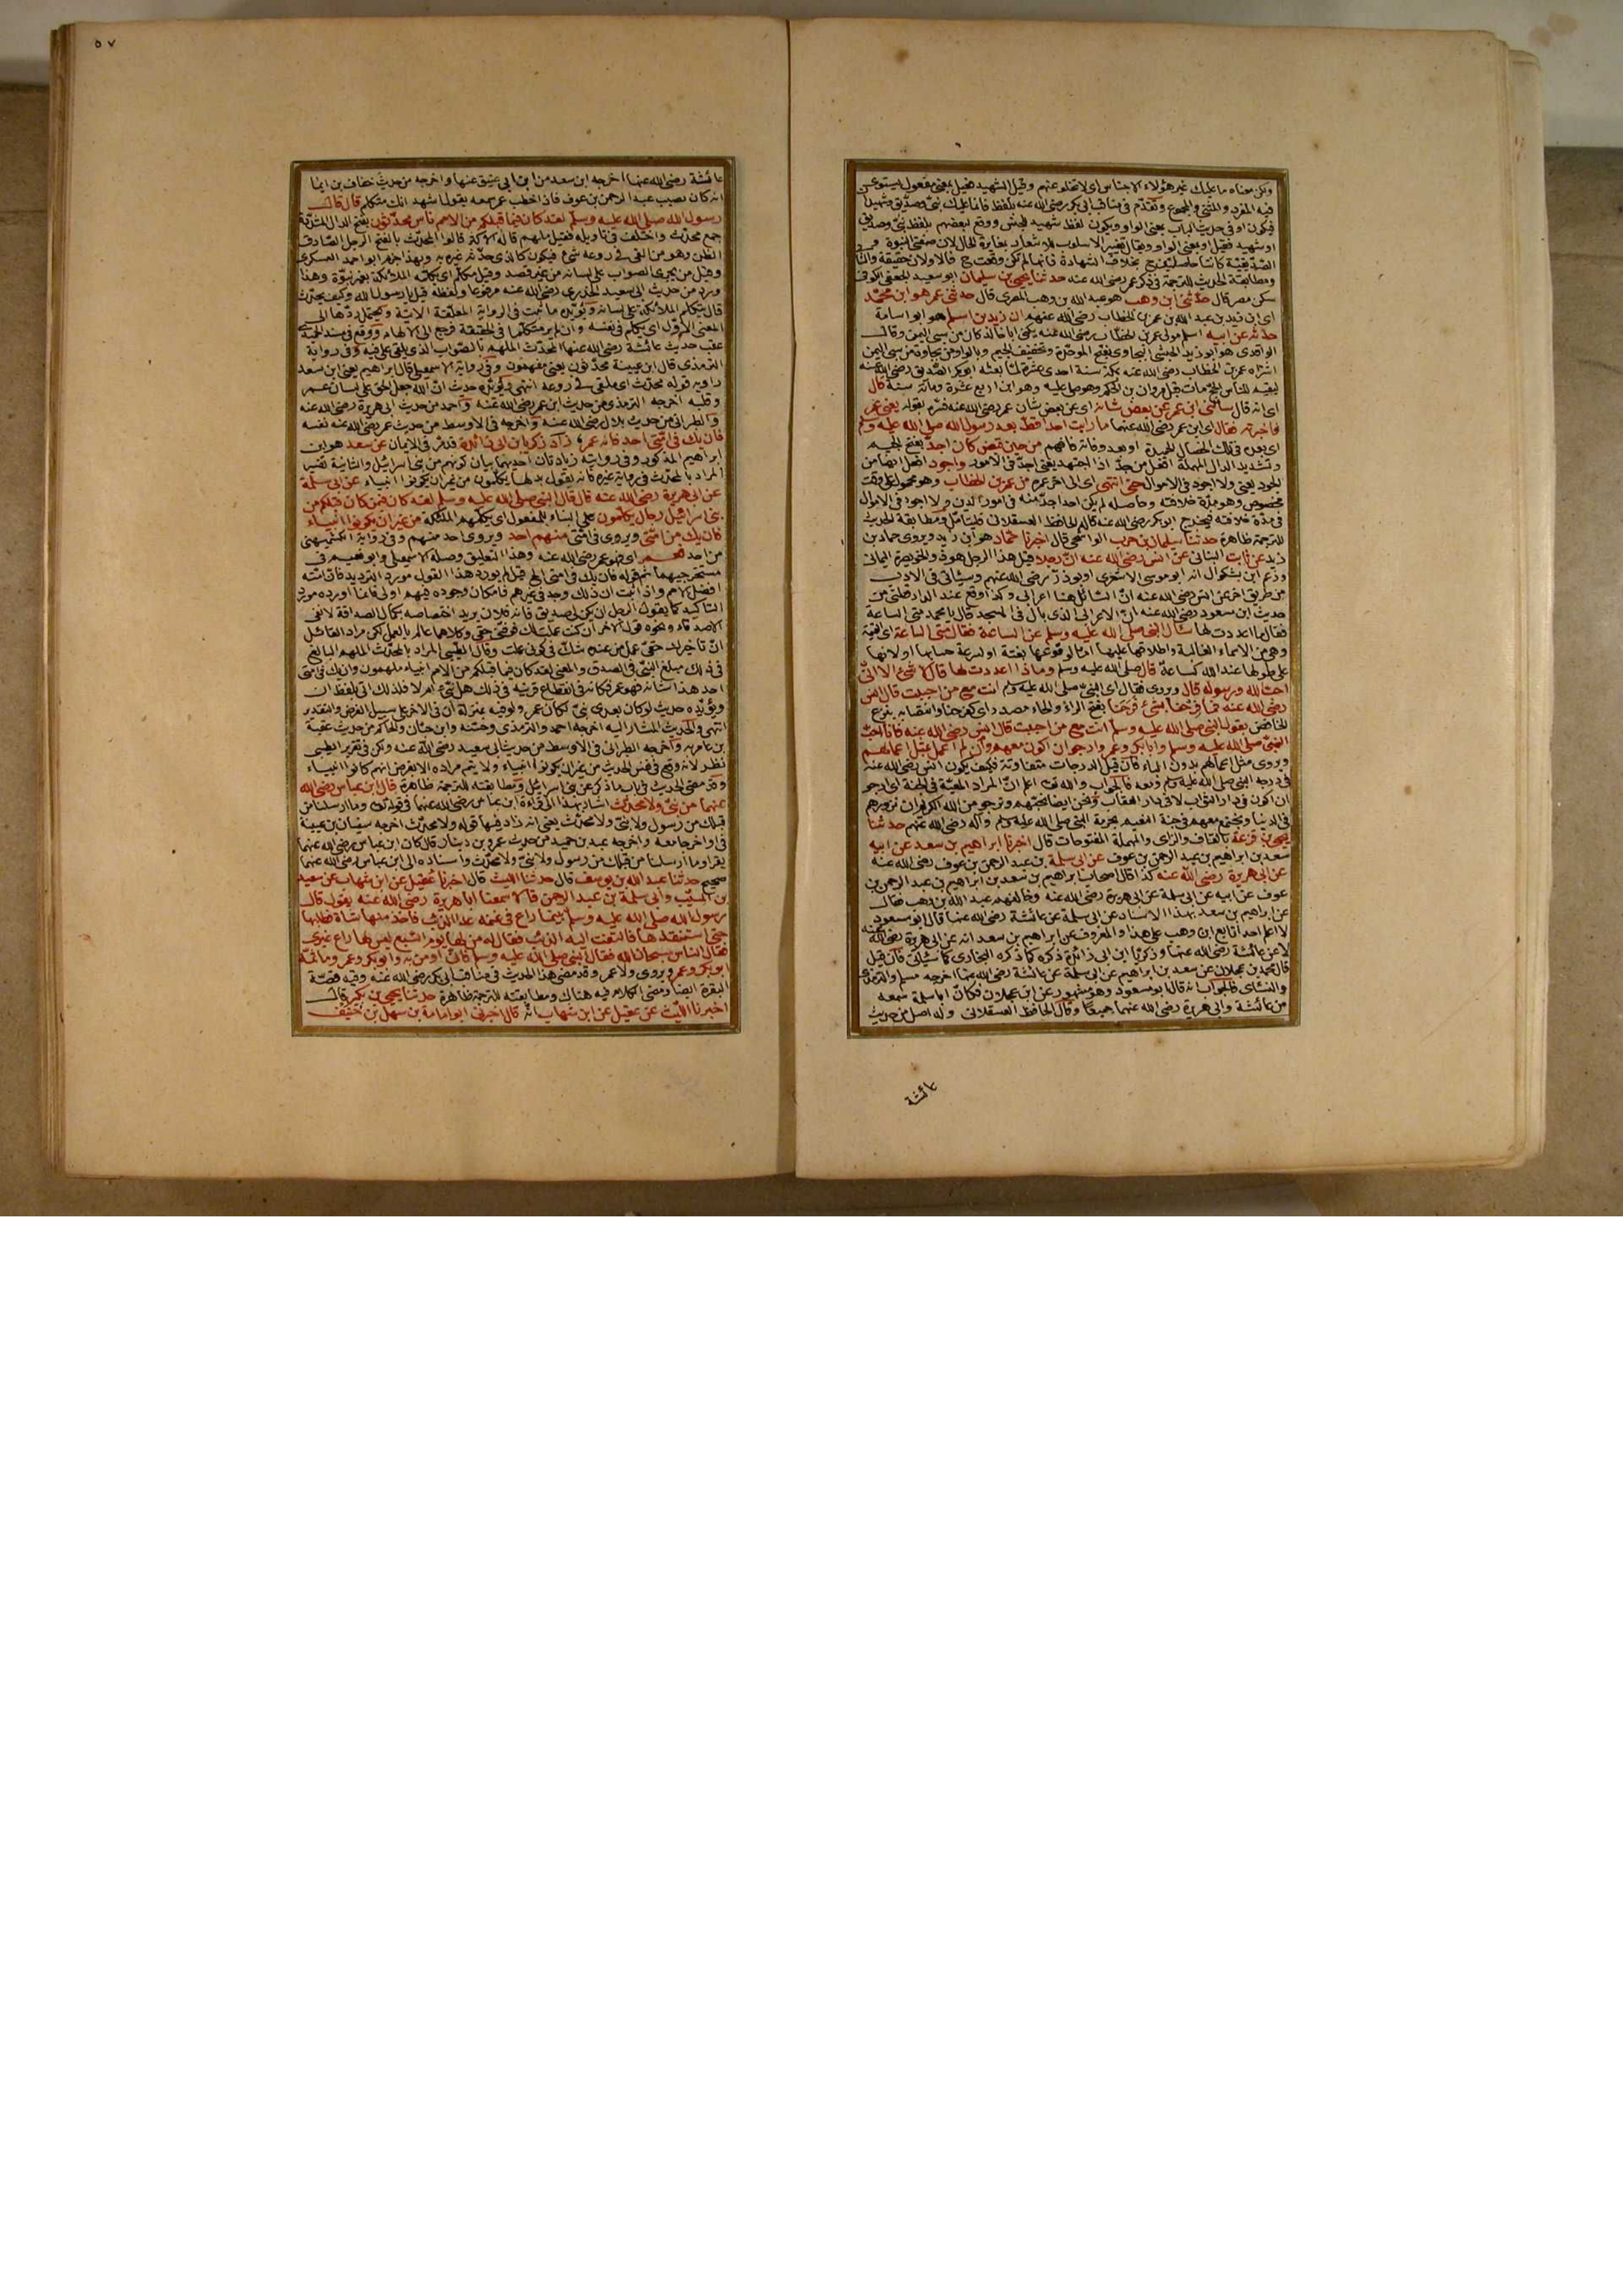 ولكن معناه ما عليك غير هؤلاء الاجناس اى لا تخلو عنهم وقيل الشهيد فعيل بمعنى مفعول يستوى
فيه المفرد والمثنى والمجموع وتقدم فى مناقب ابى بكر رضى الله عنه بلفظ فانما عليك نبى وصديق وشهيدان
فيكون او فى حديث الباب بمعنى الواو ويكون لفظ شهيد للجنس ووقع لبعضهم بلفظ نبى وصديق
او شهيد فقيل او بمعنى الواو وقيل تغيير الاسلوب للاشعار بمغايرة الحال لان صفتى النبوة و
الصديقية كانتا حاصلتين ح بخلاف الشهادة فانها لم تكن وقعت ح فالاولان حقيقة والثا
ومطابقة الحديث للترجمة فى ذكر عمر رضى الله عنه حدثنا يحيى بن سليمان ابو سعيد الجعفى الكوفى
سكن مصر قال حدثنى ابن وهب هو عبد الله بن وهب المصرى قال حدثنى عمر هو ابن محمد
اى ابن زيد بن عبد الله بن عمر بن الخطاب رضى الله عنهم ان زيد بن اسلم هو ابو اسامة
حدثه عن ابيه اسلم مولى عمر بن الخطاب رضى الله عنه يكنى ابا خالد كان من سبى اليمن وقال
الواقدى هو ابو زيد الحبشى البجاوى بفتح الموحدة وتخفيف الجيم وبالواو من بجاوة من سبى اليمن
اشتراه عمر بن الخطاب رضى الله عنه بمكة سنة احدى عشرة لما بعثه ابو بكر الصديق رضى الله عنه
ليقيم للناس الحج مات قبل مروان بن الحكم وهو صلى عليه وهو ابن اربع عشرة ومائة سنة قال
اى انه قال سألنى ابن عمر عن بعض شانه اى عن بعض شان عمر رضى الله عنه فسره بقوله يعنى عمر
فاخبرته فقال اى ابن عمر رضى الله عنهما ما رايت احدا قط بعد رسول الله صلى الله عليه وسلم
اى بعده فى تلك الخصال الحميدة او بعد وفاته فافهم من حين قبض كان اجد بفتح الجيم
وتشديد الدال المهملة افعل من جد اذا اجتهد يعنى اجد فى الامور واجود افعل ايضا من
الجود يعنى ولا اجود فى الاموال حتى انتهى اى الى اخر عمره من عمر بن الخطاب وهو محمول على وقت
مخصوص وهو مدة خلافته وحاصله لم يكن احد اجد منه فى امور الدين ولا اجود فى الاموال
فى مدة خلافته فيخرج ابو بكر رضى الله عنه قاله الحافظ العسقلانى فليتامل ومطابقة الحديث
للترجمة ظاهرة حدثنا سليمان بن حرب الواشحى قال اخبرنا حماد هو ابن زيد ويروى حماد بن
زيد عن ثابت البنانى عن انس رضى الله عنه ان رجلا قيل هذا الرجل هو ذو الخويصرة اليمانى
وزعم ابن بشكوال انه ابو موسى الاشعرى او ابو ذر رضى الله عنهم وسيأتى فى الادب
من طريق اخر عن انس رضى الله عنه ان السائل هنا اعرابى وكذا وقع عند الدار قطنى من
حديث ابن مسعود رضى الله عنه ان الاعرابى الذى بال فى المسجد قال يا محمد متى الساعة
فقال ما اعددت لها سأل النبى صلى الله عليه وسلم عن الساعة فقال متى الساعة اى القيمة
وهى من الاسماء الغالبة واطلاقها عليها اما لوقوعها بغتة او لسرعة حسابها او لانها
على طولها عند الله كساعة قال صلى الله عليه وسلم وما ذا اعددت لها قال لا شئ الا انى
احب الله ورسوله قال ويروى فقال اى النبى صلى الله عليه وسلم انت مع من احببت قال انس
رضى الله عنه فما فرحنا بشئ فرحنا بفتح الراء والحاء مصدر اى كفرحنا وانتصابه بنزع
الخافض بقول النبى صلى الله عليه وسلم انت مع من احببت قال انس رضى الله عنه فانا احب
النبى صلى الله عليه وسلم وابا بكر وعمر وارجو ان اكون معهم وان لم اعمل بمثل اعمالهم
ويروى مثل اعمالهم بدون الباء فان قيل الدرجات متفاوتة فكيف يكون انس رضى الله عنه
فى درجة النبى صلى الله عليه وسلم ومعه فالجواب والله تعالى اعلم ان المراد المعية فى الجنة اى ارجو
ان اكون فى دار الثواب لا فى دار العقاب ونحن ايضا نحبهم ونرجو من الله الكريم ان نزورهم
فى الدنيا ونجتمع معهم فى جنة النعيم بحرمة النبى صلى الله عليه وسلم وآله رضى الله عنهم حدثنا
يحيى بن قزعة بالقاف والزاى والمهملة المفتوحات قال اخبرنا ابراهيم بن سعد عن ابيه
سعد بن ابراهيم بن عبد الرحمن بن عوف عن ابى سلمة بن عبد الرحمن بن عوف رضى الله عنه
عن ابى هريرة رضى الله عنه كذا قال اصحاب ابراهيم بن سعد بن ابراهيم بن عبد الرحمن بن
عوف عن ابيه عن ابى سلمة عن ابى هريرة رضى الله عنه وخالفهم عبد الله بن وهب فقال
عن ابراهيم بن سعد بهذا الاسناد عن ابى سلمة عن عائشة رضى الله عنها قال ابو مسعود
لا اعلم احدا تابع ابن وهب على هذا والمعروف عن ابراهيم بن سعد انه عن ابى هريرة رضى الله عنه
لا عن عائشة رضى الله عنها وزكريا ابن ابى زائدة ذكره كما ذكره البخارى كما سيأتى فان قيل
قال محمد بن عجلان عن سعد بن ابراهيم عن ابى سلمة عن عائشة رضى الله عنها اخرجه مسلم والترمذى
والنسائى فالجواب انه قال ابو مسعود وهو مشهور عن ابن عجلان فكان ابا سلمة سمعه
من عائشة وابى هريرة رضى الله عنهما جميعا وقال الحافظ العسقلانى وله اصل من حديث
عائشة
٥٧
عائشة رضى الله عنها اخرجه ابن سعد من ابن ابى عتيق عنها واخرجه من حديث خفاف بن ايما
انه كان يصيب عبد الرحمن بن عوف فاذا خطب عمر سمعه يقول اشهد انك متكلم قال قال
رسول الله صلى الله عليه وسلم لقد كان فيما قبلكم من الامم ناس محدثون بفتح الدال المشددة
جمع محدث واختلف فى تاويله فقيل ملهم قاله الاكثر قالوا المحدث بالفتح الرجل الصادق
الظن وهو من القى فى روعه شئ فيكون كالذى حدثه غيره به وبهذا جزم ابو احمد العسكرى
وقيل من يجرى الصواب على لسانه من غير قصد وقيل متكلم اى تكلمه الملائكة بغير نبوة وهذا
ورد من حديث ابى سعيد الخدرى رضى الله عنه مرفوعا ولفظه قيل يا رسول الله وكيف يحدث
قال يتكلم الملائكة على لسانه ويؤيده ما ثبت فى الرواية المعلقة الآتية ويحتمل ردها الى
المعنى الاول اى يكلم فى نفسه وان لم ير متكلما فى الحقيقة فرجع الى الالهام ووقع فى مسند الحميدى
عقب حديث عائشة رضى الله عنها المحدث الملهم بالصواب الذى يلقى على فيه وفى رواية
الترمذى قال ابن عيينة محدثون يعنى مفهمون وفى رواية الاسمعيلى قال ابراهيم يعنى ابن سعد
راويه قوله محدث اى ملقى فى روعه انتهى ويؤيده حديث ان الله جعل الحق على لسان عمر
وقلبه اخرجه الترمذى من حديث ابن عمر رضى الله عنه واحمد من حديث ابى هريرة رضى الله عنه
والطبرانى من حديث بلال رضى الله عنه واخرجه فى الاوسط من حديث عمر رضى الله عنه نفسه
فان يك فى امتى احد فانه عمر زاد زكريا بن ابى زائدة قد مر فى الايمان عن سعد هو ابن
ابراهيم المذكور وفى روايته زيادتان احديهما بيان كونهم من بنى اسرائيل والثانية تفسير
المراد بالمحدث فى رواية غيره فانه يقول بدلها يكلمون من غير ان يكونوا انبياء عن ابى سلمة
عن ابى هريرة رضى الله عنه قال قال النبى صلى الله عليه وسلم لقد كان فيمن كان قبلكم من
بنى اسرائيل رجال يكلمون على البناء للمفعول اى يكلمهم الملئكة من غير ان يكونوا انبياء
فان يك من امتى ويروى فى امتى منهم احد ويروى احد منهم وفى رواية الكشميهنى
من احد فعمر اى فهو عمر رضى الله عنه وهذا التعليق وصله الاسمعيلى وابو نعيم فى
مستخرجيهما ثم قوله فان يك فى امتى الخ قيل لم يورد هذا القول مورد الترديد فان امته
افضل الامم واذا ثبت ان ذلك وجد فى غيرهم فامكان وجوده فيهم اولى فانما اورده مورد
التاكيد كما يقول الرجل ان يكن لى صديق فانه فلان يريد اختصاصه بكمال الصداقة لا نفى
الاصدقاء ونحوه قول الاخر ان كنت عملت لك فوفنى حقى وكلاهما عالم بالعمل لكن مراد القائل
ان تاخيرك حقى عمل من عنده شك فى كونى عملت وقال الطيبى المراد بالمحدث الملهم البالغ
فى ذلك مبلغ النبى فى الصدق والمعنى لقد كان فيما قبلكم من الامم انبياء ملهمون وان يك فى امتى
احد هذا شانه فهو عمر فكانه فى انقطاع قرينه فى ذلك هل نبى ام لا فلذلك اتى بلفظ ان
ويؤيده حديث لو كان بعدى نبى لكان عمر ولو فيه بمنزلة ان فى الاخر على سبيل الفرض والتقدير
انتهى والحديث المشار اليه اخرجه احمد والترمذى وحسنه وابن حبان والحاكم من حديث عقبة
بن عامر واخرجه الطبرانى فى الاوسط من حديث ابى سعيد رضى الله عنه ولكن فى تقرير الطيبى
نظر لانه وقع فى نفس الحديث من غير ان يكونوا انبياء ولا يتم مراده الا بفرض انهم كانوا انبياء
وقد مضى الحديث فى باب ما ذكر عن بنى اسرائيل ومطابقته للترجمة ظاهرة قال ابن عباس رضى الله
عنهما من نبى ولا محدث اشار بهذا الى قراءة ابن عباس رضى الله عنهما فى قوله تعالى وما ارسلنا من
قبلك من رسول ولا نبى ولا محدث يعنى انه زاد فيها قوله ولا محدث اخرجه سفيان بن عيينة
فى اواخر جامعه واخرجه عبد بن حميد من حديث عمرو بن دينار قال كان ابن عباس رضى الله عنهما
يقرأ وما ارسلنا من قبلك من رسول ولا نبى ولا محدث واسناده الى ابن عباس رضى الله عنهما
صحيح حدثنا عبد الله بن يوسف قال حدثنا الليث قال اخبرنا عقيل عن ابن شهاب عن سعيد
بن المسيب وابى سلمة بن عبد الرحمن قالا سمعنا ابا هريرة رضى الله عنه يقول قال
رسول الله صلى الله عليه وسلم بينما راع فى غنمه عدا الذئب فاخذ منها شاة فطلبها
حتى استنقذها فالتفت اليه الذئب فقال له من لها يوم السبع ليس لها راع غيرى
فقال الناس سبحان الله فقال النبى صلى الله عليه وسلم فانى اومن به وابو بكر وعمر وما ثمه
ابو بكر وعمر ويروى ولا عمر وقد مضى هذا الحديث فى مناقب ابى بكر رضى الله عنه وفيه قصة
البقرة ايضا ومضى الكلام فيه هناك ومطابقته للترجمة ظاهرة حدثنا يحيى بن بكير قال
اخبرنا الليث عن عقيل عن ابن شهاب انه قال اخبرنى ابو امامة بن سهل بن حنيف